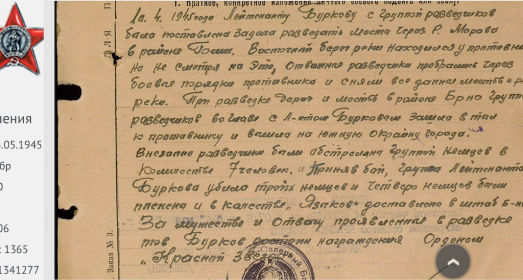 I. Краткое, конкретное изложение
1а. 4. 1945 года Лейтенанту Буркову с группой разведчиков
была поставлена задача разведать моста через Р. Морава
в районе Восточный берег реки находился у противни
но не смотря на это, Отважные разведчики пробрались через
боевые порядки противника и сняли все данные мостов и
реки. При разведке дорог и мостов в районе Брно групп
разведчиков во главе с Л-том Бурковым зашла в тыл
к противнику и вышла на южную окраину города.
Внезапно разведчики были обстреляны группой немцев в
количестве 7 человек. Приняв бой, группа Лейтенант
Буркова убила троих немцев и четверо немцев были
пленена и в качестве „Языков" доставлена в штаб
За мужество и отвагу проявленные в разведке
тов Бурков достоин награждения Орденом
„Красная Звезда
ДЛЯ П
Заказ № 3.
ления
.05.1945
бр
06
: 1365
1341277